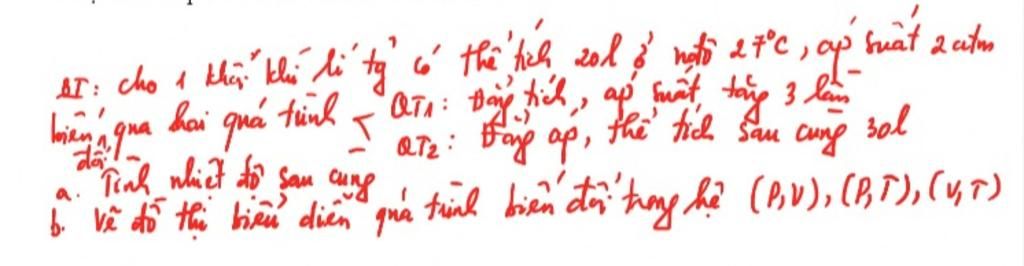 BT: cho 1 khối khí lí tg̉ có thể tích 20l ở nđộ 27°C, áp suất 2 atm
biến đổi qua hai quá trình < QT1: Đẳng tích, áp suất tăng 3 lần
QT2: Đẳng áp, thể tích sau cùng 30l
a. Tính nhiệt độ sau cùng
b. Vẽ đồ thị biểu diễn quá trình biến đổi trong hệ (P,V), (P,T), (V,T)